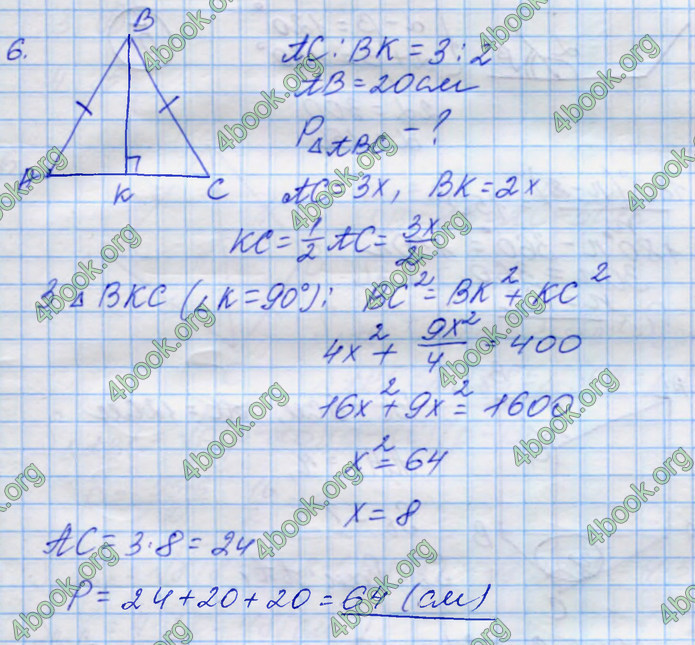 6.
B
A
K
C
AC : BK = 3 : 2
AB = 20 см
P△ABC - ?
AC = 3x, BK = 2x
KC = 1/2 AC = 3x/2
З △ BKC (∠K = 90°): BC² = BK² + KC²
4x² + 9x²/4 = 400
16x² + 9x² = 1600
x² = 64
x = 8
AC = 3·8 = 24
P = 24 + 20 + 20 = 64 (см)
4book.org